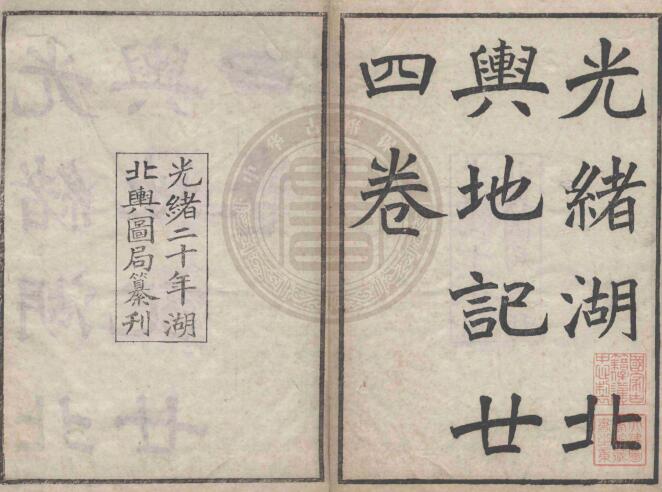 光緒湖北
輿地記廿
四卷
光緒二十年湖
北輿圖局纂刊